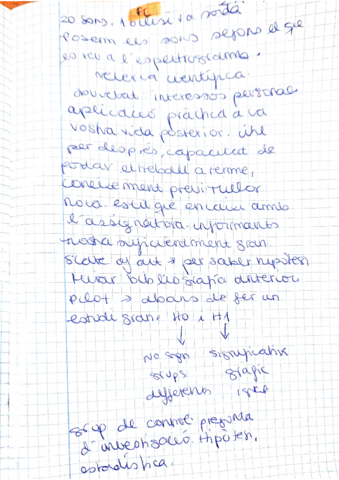 PC
20 sons. 1 oclusiva sorda
posem els sons segons el que
es veu a l'espectrograma.
recerca científica.
novetat. interessos personals
aplicació pràctica a la
vostra vida posterior. útil
per després, capacitat de
portar el treball a terme,
coneixement previ
nova. estil que encaixi amb
l'assignatura. informants
mostra suficientment gran
state of art → per saber hipòtesi
mirar bibliografia anterior
pilot → abans de fer un
estudi gran. H0 i H1
↓ ↓
no sign significativa
grups gràfic
diferents igual
grup de control. pregunta
d'investigació. Hipòtesi.
estadística.